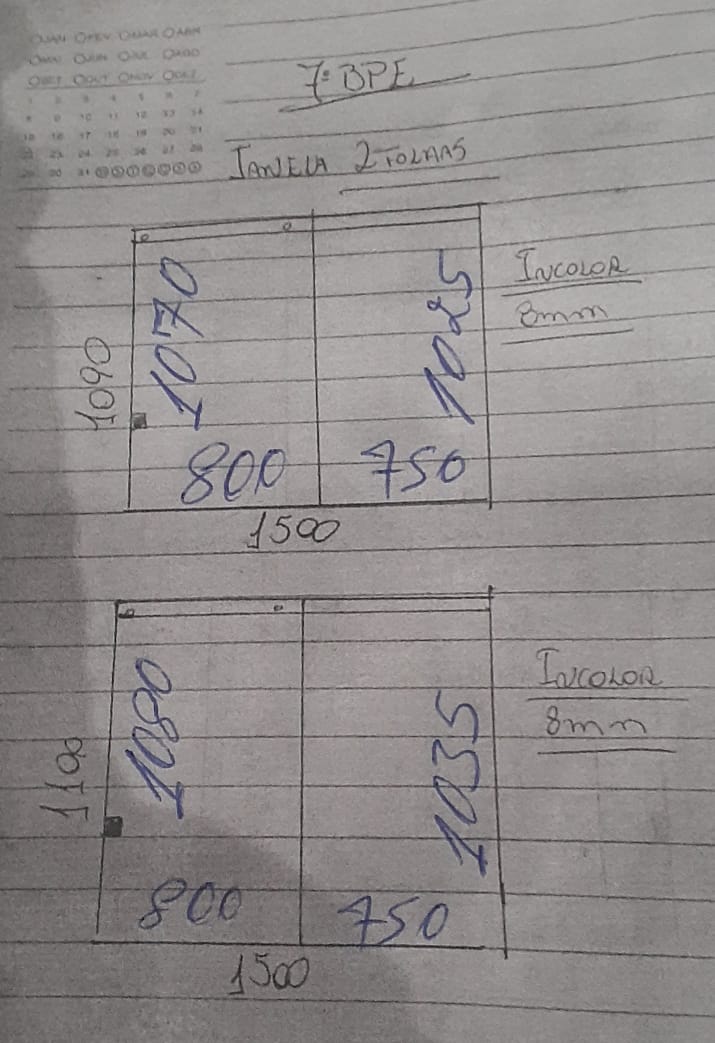 OJAN OFEV OMAR OABR
OMAI OJUN OJUL OAGO
OSET OOUT ONOV ODEZ
1 2 3 4 5 6 7
8 9 10 11 12 13 14
15 16 17 18 19 20 21
22 23 24 25 26 27 28
29 30 31
7º BPE
JANELA 2 FOLHAS
1070
1025
INCOLOR
8mm
1090
800
750
1500
1080
1035
INCOLOR
8mm
1100
800
750
1500